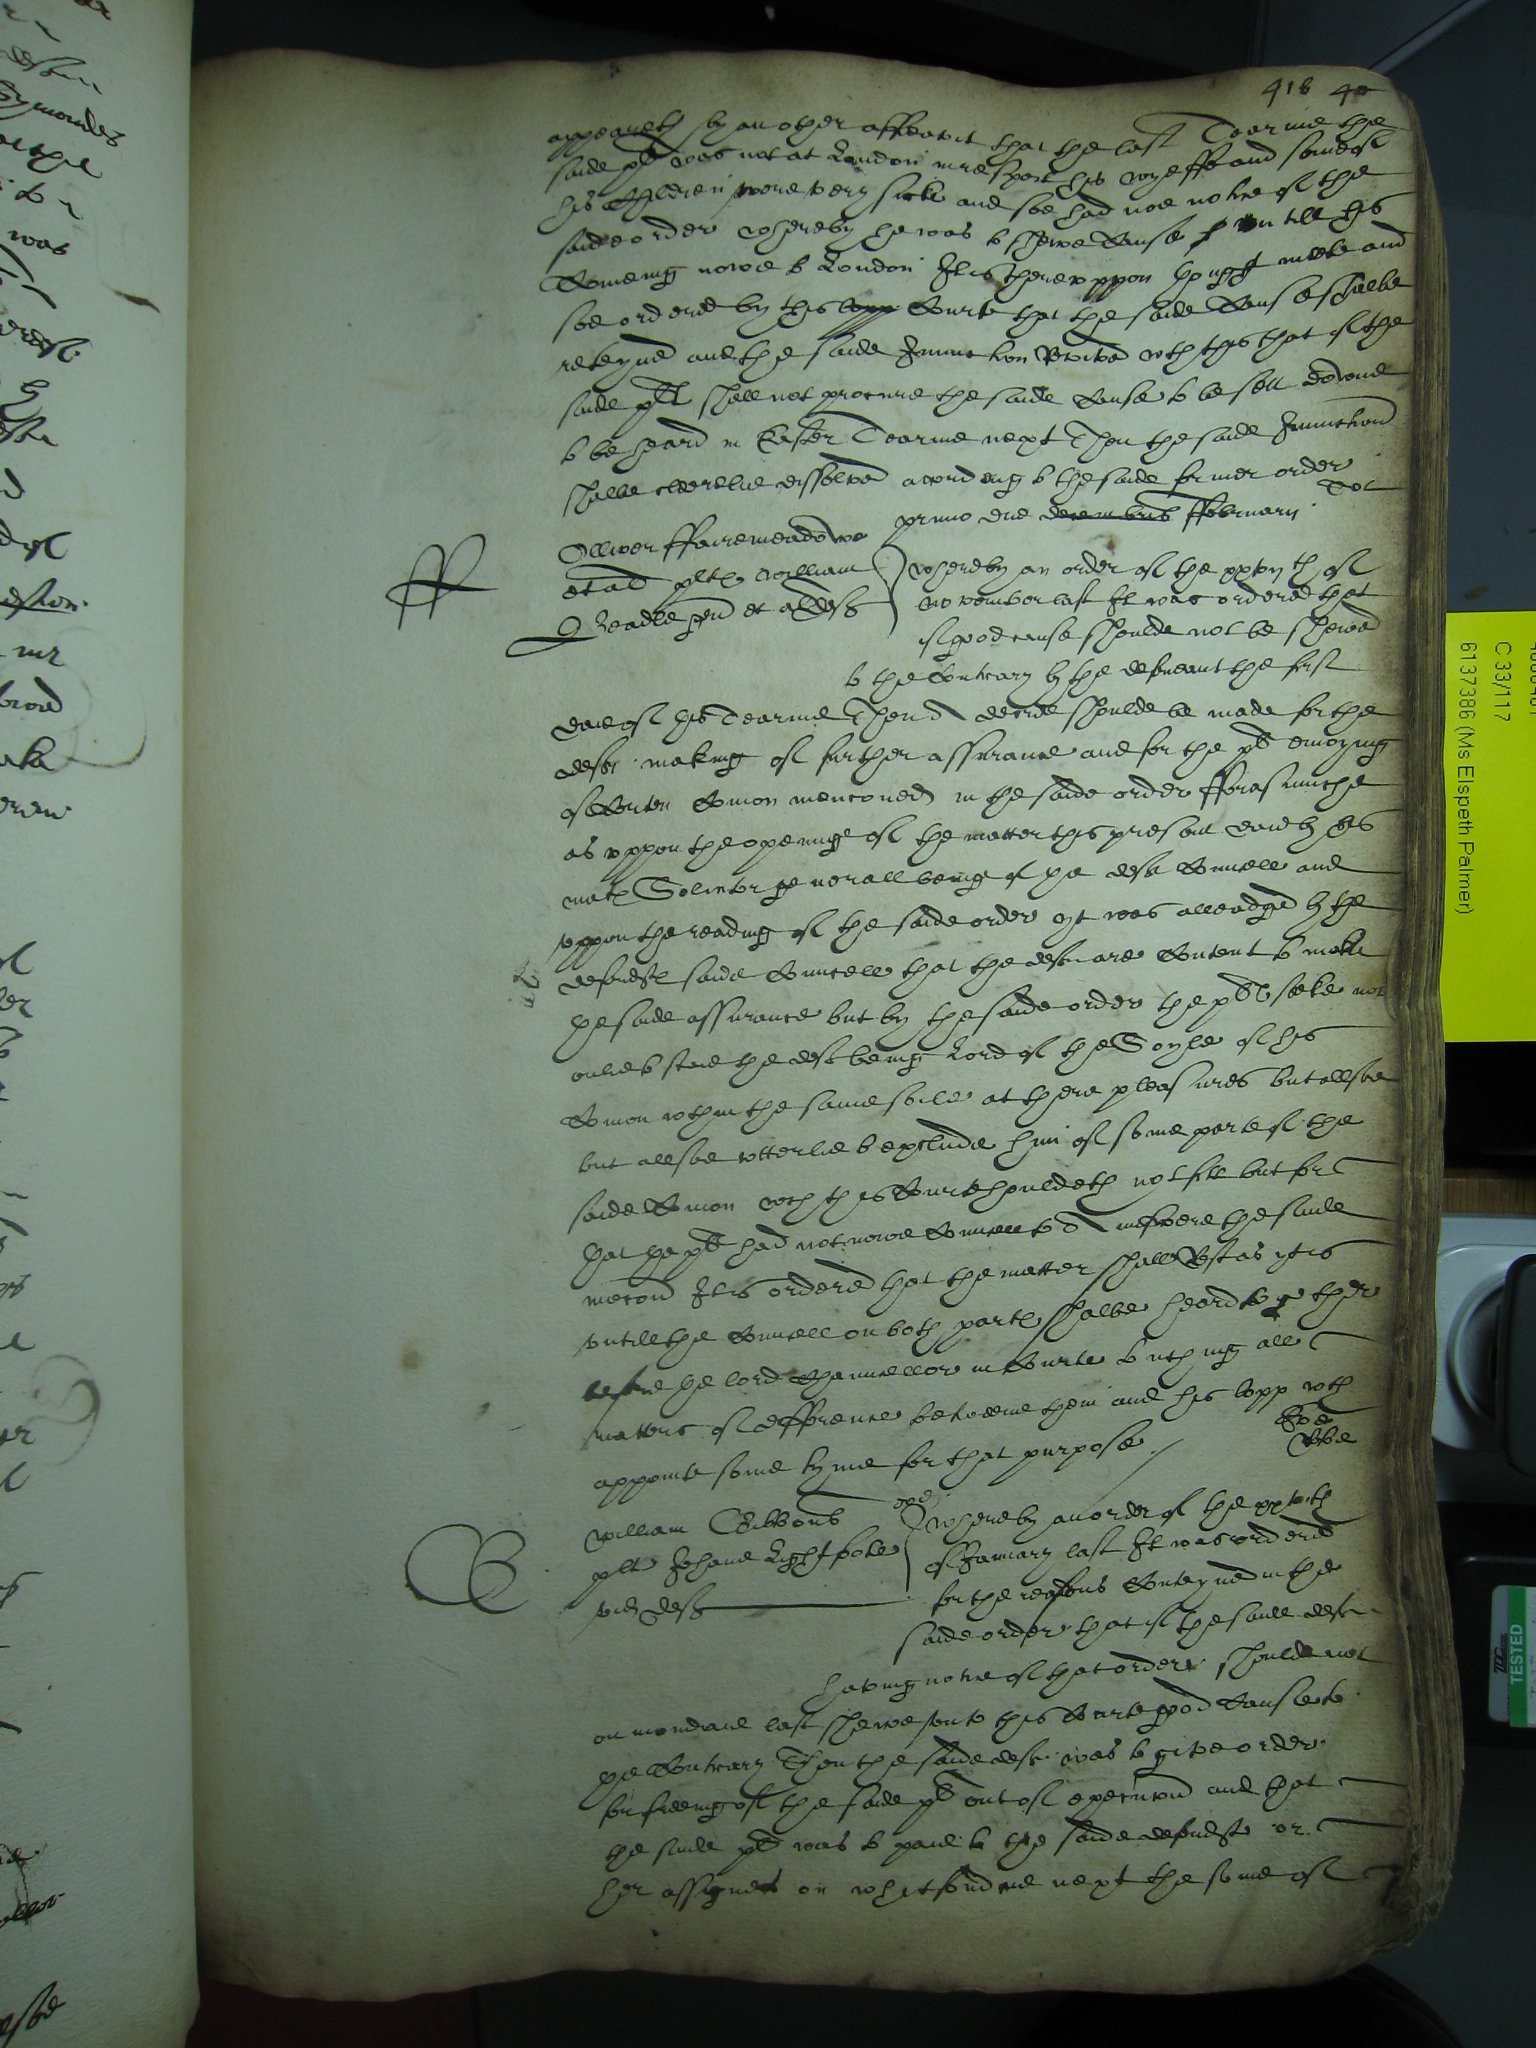 418 40
appeareth by another affeavit that the last Tearme the
saide plt was not at London in respect his wyeffe and some of
his Children were very sicke and soe had noe notice of the
saide order whereby he was to shewe Cause untill his
Comeing nowe to London It is thereuppon thought meete and
soe ordered by this Courte that the saide Cause shalbe
reteyned and the saide Iniunction Revived wth this that if the
saide plt shall not procure the saide Cause to be sett downe
to be heard in Easter Tearme next Then the saide Iniunction
shalbe cleerelie dissolved according to the saide former order
primo die decembris ffebruarij
Olliver ffairemeadowe
et al plts William
Beadle gen et al defts
whereby an order of the xxvth of
November last It was ordered that
if good cause shoulde not be shewed
to the Contrary by the defendant the first
daie of this Tearme Then a decree shoulde be made for the
defts making of further assurance and for the plts enioying
of Common mencioned in the saide order fforasmuche
as uppon the openinge of the matter this present daie by
mats Solicitor generall being of the defts Councell and
uppon the reading of the saide order yt was alleadged by the
defendts saide Councell that the defts are Content to make
the saide assurance but by the saide order the plts seeke not
onlie to the deft being Lord of the Soyle of his
Comon within the same soile at there pleasures but allsoe
but allsoe utterlie to exclude him of some parte of the
saide Comon wch this Courte houldeth not fitt but for
that the plts had not nowe Councell to answere the saide
mocion It is ordered that the matter shall Rest as yt is
untill the Councell on both parts shalbe heard together
before the lord Chauncellor in Courte touching all
matters of difference betweene them and his lopp wth
appointe some tyme for that purpose
William Gibbons
plt Johane Lightfoote
vid deft
whereby an order of the xxvth
of January last It was ordered
for the reasons Conteyned in the
saide order that if the saide deft
having notice of that order shoulde not
on mondaie last shewe unto this Courte good Cause to
the Contrary Then the saide deft was to give order
for freeing of the saide plt out of execution and that
the saide plt was to paie to the saide defendt or
her assignes on whitsondaie next the some of
C 33/117
6137386 (Ms Elspeth Palmer)
TESTED